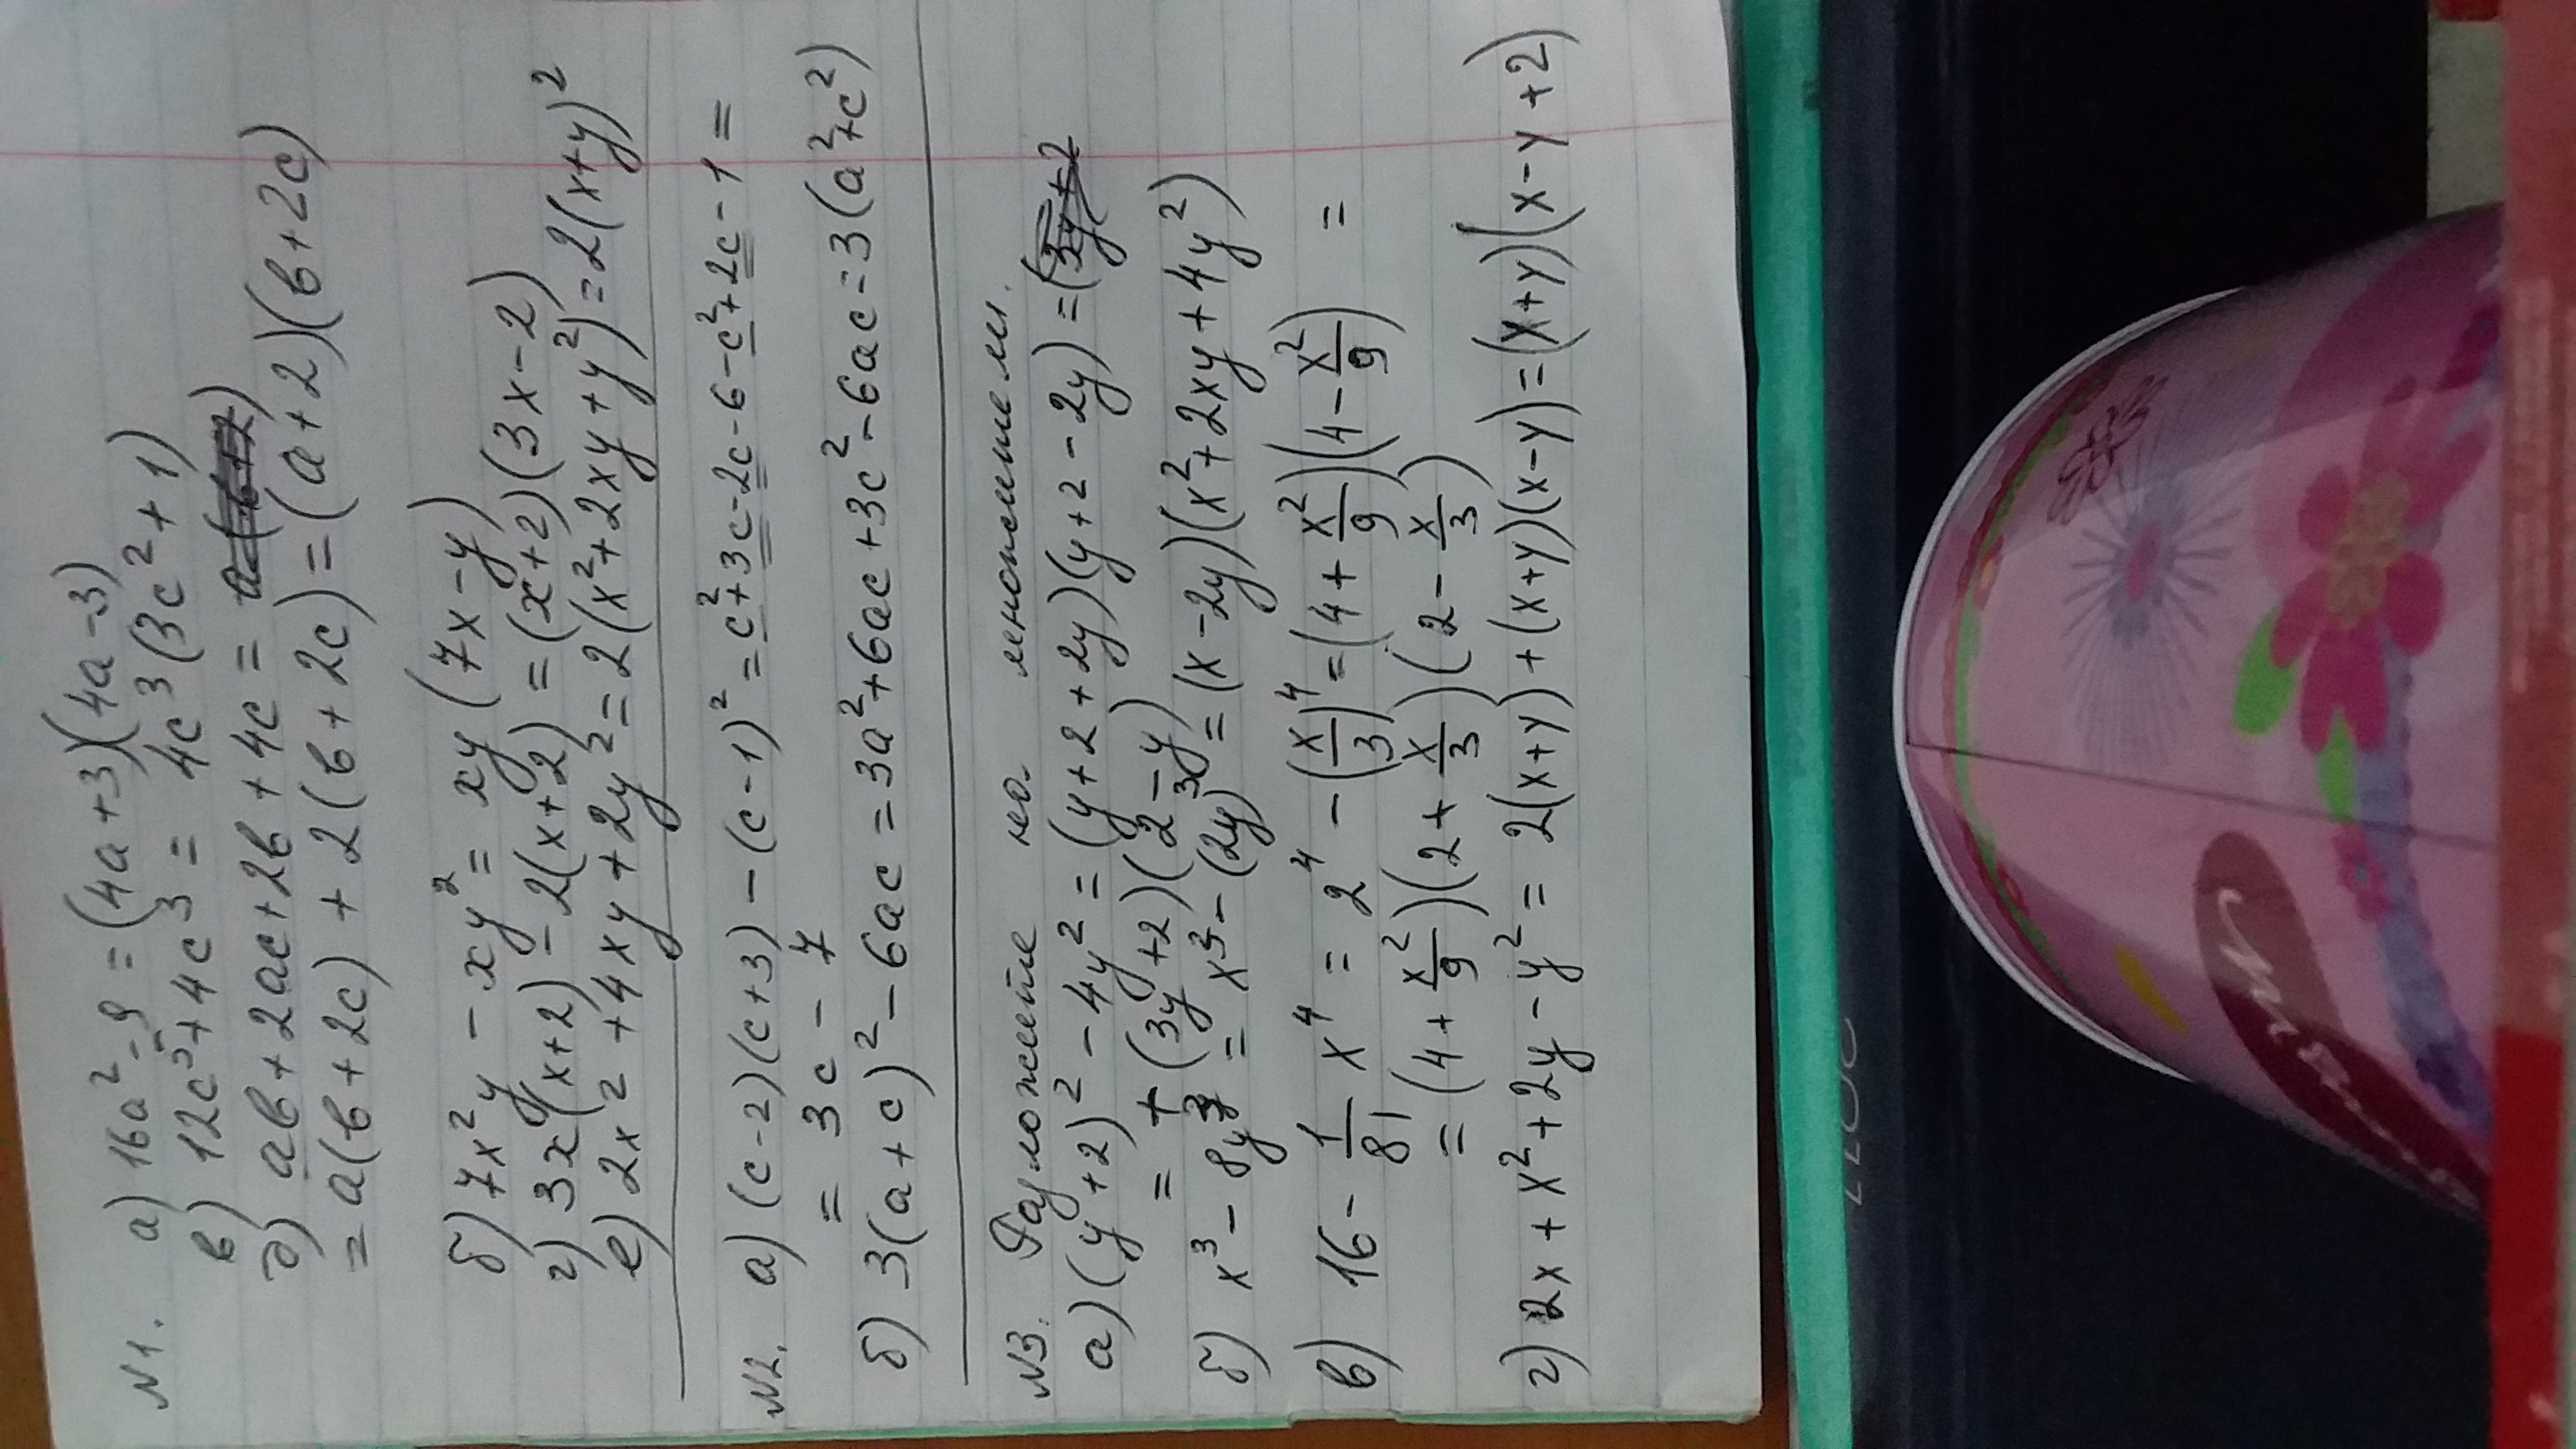 N1. а) 16a² - 9 = (4a+3)(4a-3)
в) 12c⁵ + 4c³ = 4c³(3c² + 1)
д) ab + 2ac + 2b + 4c =
= a(b + 2c) + 2(b + 2c) = (a+2)(b+2c)
б) 7x²y - xy² = xy(7x-y)
г) 3x(x+2) - 2(x+2) = (x+2)(3x-2)
е) 2x² + 4xy + 2y² = 2(x² + 2xy + y²) = 2(x+y)²
N2. а) (c-2)(c+3) - (c-1)² = c² + 3c - 2c - 6 - c² + 2c - 1 =
= 3c - 7
б) 3(a+c)² - 6ac = 3a² + 6ac + 3c² - 6ac = 3(a²+c²)
N3. Разложите на множители.
а) (y+2)² - 4y² = (y+2+2y)(y+2-2y) =
= (3y+2)(2-y)
б) x³ - 8y³ = x³ - (2y)³ = (x-2y)(x² + 2xy + 4y²)
в) 16 - 1/81 x⁴ = 2⁴ - (x/3)⁴ = (4 + x²/9)(4 - x²/9) =
= (4 + x²/9)(2 + x/3)(2 - x/3)
г) 2x + x² + 2y - y² = 2(x+y) + (x+y)(x-y) = (x+y)(x-y+2)